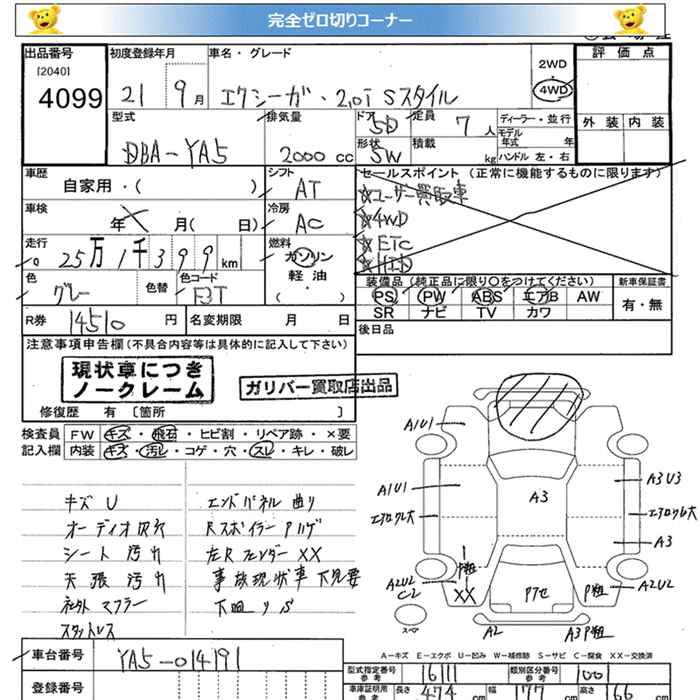 完全ゼロ切りコーナー
出品番号 初度登録年月 車名・グレード 2WD 評価点
[2040]
4099 21 9月 エクシーガ・2.0T Sスタイル 4WD
型式 排気量 ドア 5D 定員 7人 ディーラー・並行 外装 内装
DBA-YA5 2000cc 形状 SW 積載 kg モデル年式 年式 ハンドル 左・右
車歴 シフト セールスポイント (正常に機能するものに限ります)
自家用・( ) AT ☆ユーザー買取車
車検 冷房 ☆4WD
年 ╳ 月( 日) AC ☆ETC
走行 燃料 ☆HID
25万1千399km ガソリン
軽油
・( )
色 色替 色コード 装備品 (純正品に限り○をつけてください) 新車保証書
グレー E3T PS PW ABS エアB AW 有・無
SR ナビ TV カワ
R券 14510円 名変期限 月 日 後日品
注意事項申告欄(不具合内容等は具体的に記入して下さい)
現状車につき
ノークレーム
ガリバー買取店出品
修復歴 有 〔箇所 〕
検査員 FW キズ・飛石・ヒビ割・リペア跡・×要
記入欄 内装 キズ・汚レ・コゲ・穴・スレ・キレ・破レ
キズ U エンドパネル 曲り
オーディオ欠 Rスポイラー Pハゲ
シート 汚れ 左Rフェンダー XX
天張 汚れ 事故現状車 下見要
社外 マフラー 下回り S
スタットレス
A1U1
A1U1
エアロワレ大
A2U2
C2
P粗
XX
スペア
A3
Pワセ
P粗
A2
A3P粗
A3U3
エアロワク大
A3
A2U2
A=キズ E=エクボ U=凹み W=補修跡 S=サビ C=腐食 XX=交換済
車台番号 YA5-014191
登録番号
型式指定番号 参考 16111 類別区分番号 参考 1001
車庫証明用 参考 長さ 474cm 幅 177cm 高さ 166cm